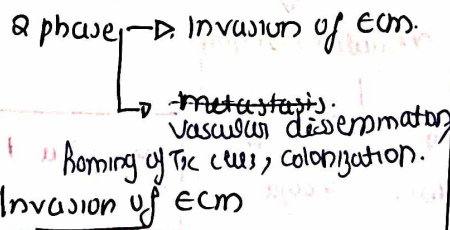 2 phase → Invasion of ECM.
→ ~~metastasis.~~
vascular dissemmaton,
homing of Tic cells, colonization.
Invasion of ECM